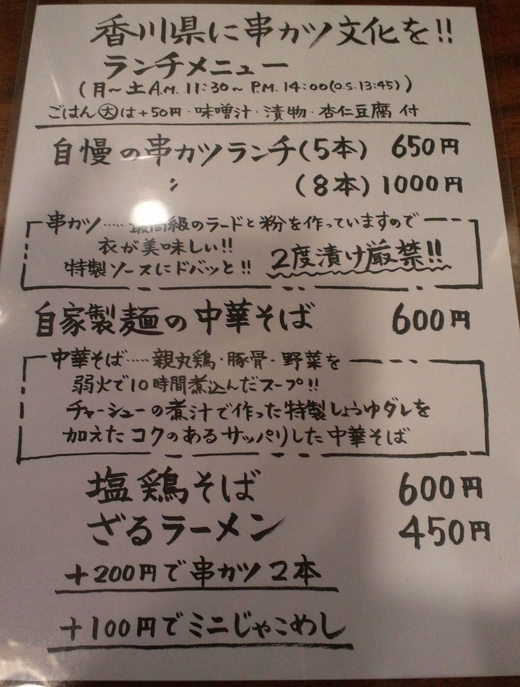 香川県に串カツ文化を!!
ランチメニュー
(月~土 A.M. 11:30~ P.M. 14:00(O.S.13:45))
ごはん大は+50円・味噌汁・漬物・杏仁豆腐 付
自慢の串カツランチ(5本) 650円
〃 (8本) 1000円
串カツ……最高級のラードと粉を作っていますので
衣が美味しい!!
特製ソースにドバッと!! 2度漬け厳禁!!
自家製麺の中華そば 600円
中華そば……親丸鶏・豚骨・野菜を
弱火で10時間煮込んだスープ!!
チャーシューの煮汁で作った特製しょうゆダレを
加えたコクのあるサッパリした中華そば
塩鶏そば 600円
ざるラーメン 450円
+200円で串カツ2本
+100円でミニじゃこめし